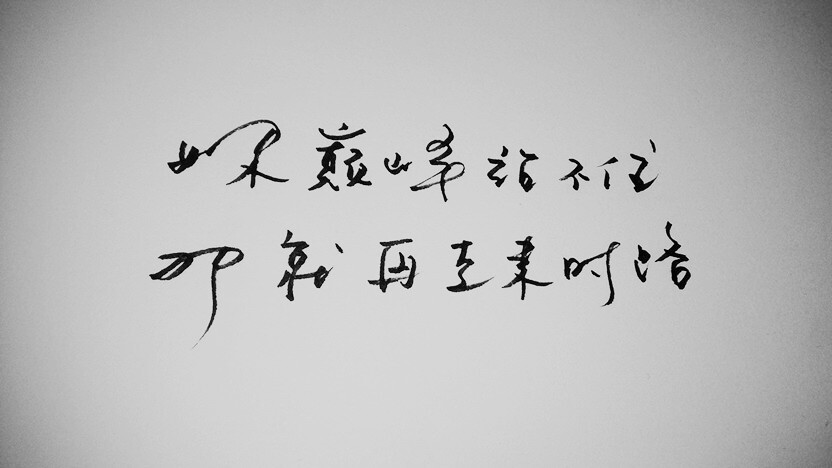 如果巅峰站不住
那就再走来时路